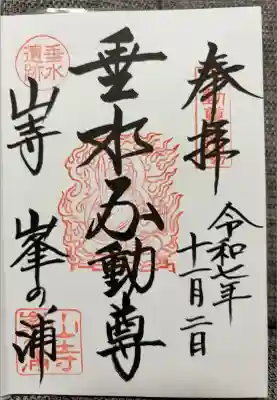 奉拝
令和七年
十一月二日
垂水不動尊
垂水
遺跡
山寺 峯の浦
山寺
峯浦